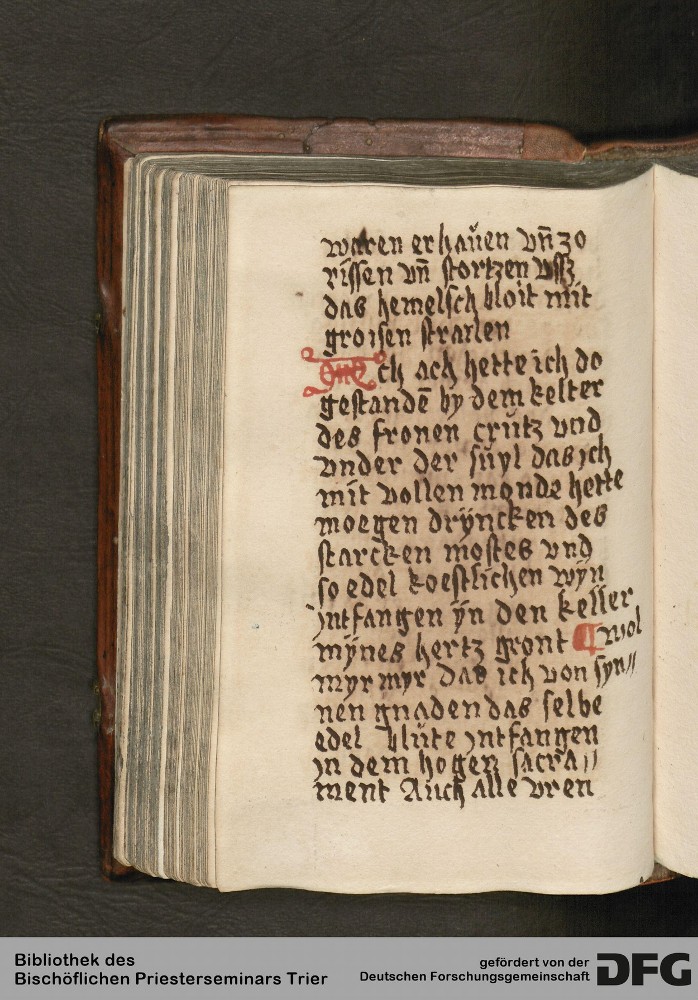 waren erhauen vn̄ zo
rissen vn̄ stortzen vssz
das hemelsch bloit mit
groisen stralen
ch ach hette ich do
gestandē by dem kelter
des fronen crütz vnd
vnder der süyl das jch
mit vollen monde hette
moegen drÿncken des
starcken mostes vnd
so edel koestlichen wÿn
jntfangen ÿn den keller
mÿnes hertz gront ¶ wol
myr myr das ich von syn//
nen gnaden das selbe
edel blüte jntfangen
jn dem hogen sacra//
ment Auch alle vren
Bibliothek des
Bischöflichen Priesterseminars Trier
gefördert von der
Deutschen Forschungsgemeinschaft
DFG